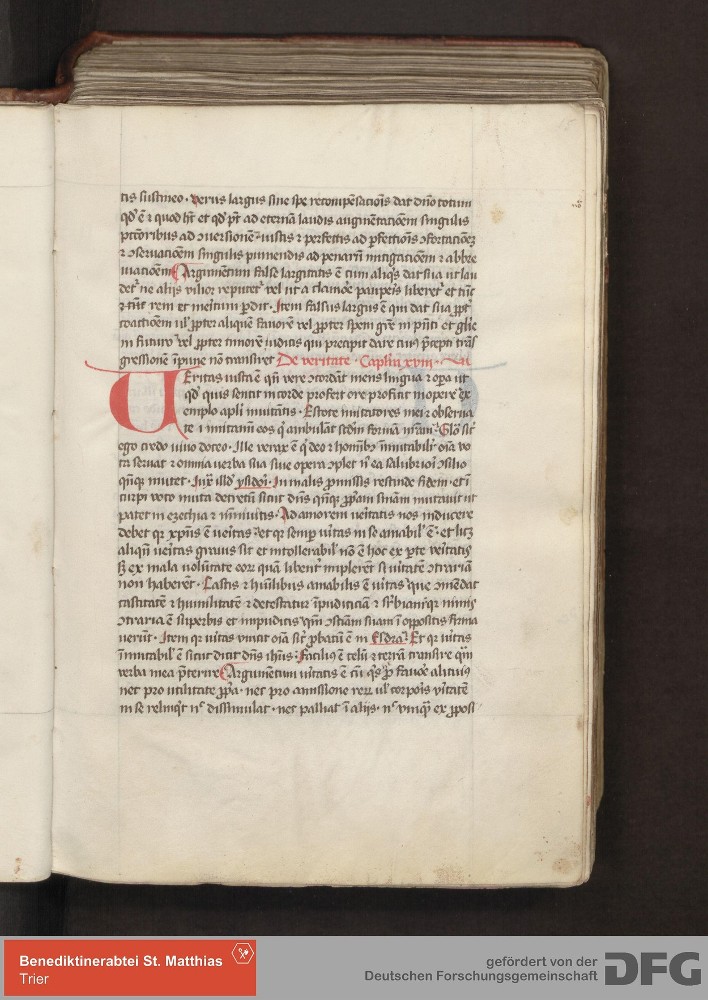 tis sustineo · Verus largus sine spe recompēsacōis dat dño totum
qd' ē ⁊ quod hꝫ et qd' pt̄ ad eternā laudis augmētacōem singulis
pctōribus ad ↄuersionē · iustis ⁊ perfectis ad ꝑfectiōis ↄfortacōeꝫ
⁊ ↄseruacōem singulis puniendis ad penarū mitigacōem ⁊ abbre
uiacōem Argumētum false largitatis ē cum aliqͥs dat sua ut lau
det' ne alijs vilior reputet' vel ut a clamoē paupeis liberet' et tūc
⁊ rem et meritum ꝑdit · Item falsus largus ē qui dat sua ꝓpt'
coactioēm ul' ꝓpter aliquē fauorē vel ꝓpter spem grē in pn̄ti et glīe
in futuro vel ꝓpter timorē iudicis qui precipit dare cuiꝰ p̄cepti trās
gressionē īpune nō transiret De veritate · Caplm xviii ·
VEritas iusta ē qn̄ vere ↄcordāt mens lingua ⁊ oꝑa ut
qd' quis sentit in corde profert ore proficit in opere ex
emplo apli inuitātis · Estote imitatores mei ⁊ obserua
te eos qͥ ambulāt scdm formā nr̄am · Glo
ego credo viuo doceo · Ille verax ē qͥ deo ⁊ hoībꝫ īmutabilr̄ oīa vo
ta seruat ⁊ omnia verba sua siue opera ↄplet nͥ ea salubriori ↄsilio
qn̄qꝫ mutet · Iux illd' ysidori · In malis ꝓmissis rescinde fidem · et ī
turpi voto muta decretū sicut dn̄s qn̄qꝫ ꝓpͥam snīam mutauit ut
patet in ezechia ⁊ niniuitis · Ad amorem veritatis nos inducere
debet qꝛ xp̄us ē veritas · et qꝛ semp̄ vītas in se amabil' ē · et licꝫ
aliqn̄ veritas grauis sit et intollerabil' nō ē hoc ex ꝑte veritatis
sꝫ ex mala volūtate eoꝝ quā libent' implerent si vītate ↄtrariā
non haberent · Castis ⁊ hūilibus amabilis ē vītas que ↄmēdat
castitatē ⁊ humilitatē ⁊ detestatur īpudiciciā ⁊ suꝑbiam qꝛ nimis
ↄtraria ē superbis et impudicis qm̄ ↄsciam suam ī oppositis firma
uerūt · Item qꝛ vītas vincit oīa sic' ꝓbatū ē in Esdra · Et qꝛ vītas
īmutabil' ē sicut dicit dn̄s ihūs · Faciliꝰ ē celū ⁊ terrā transire qͣm
verba mea p̄terire Argumētum vītatis ē cū qͥs ꝓ fauoē alicuiꝰ
nec pro utilitate ꝓpͥa · nec pro amissione rerū ul' corpois vītatē
in se relinqͥt nͨ dissimulat · nec palliat ī alijs · nͨ vmqͣꝫ ex ꝓposi
Benediktinerabtei St. Matthias
Trier
gefördert von der
Deutschen Forschungsgemeinschaft DFG